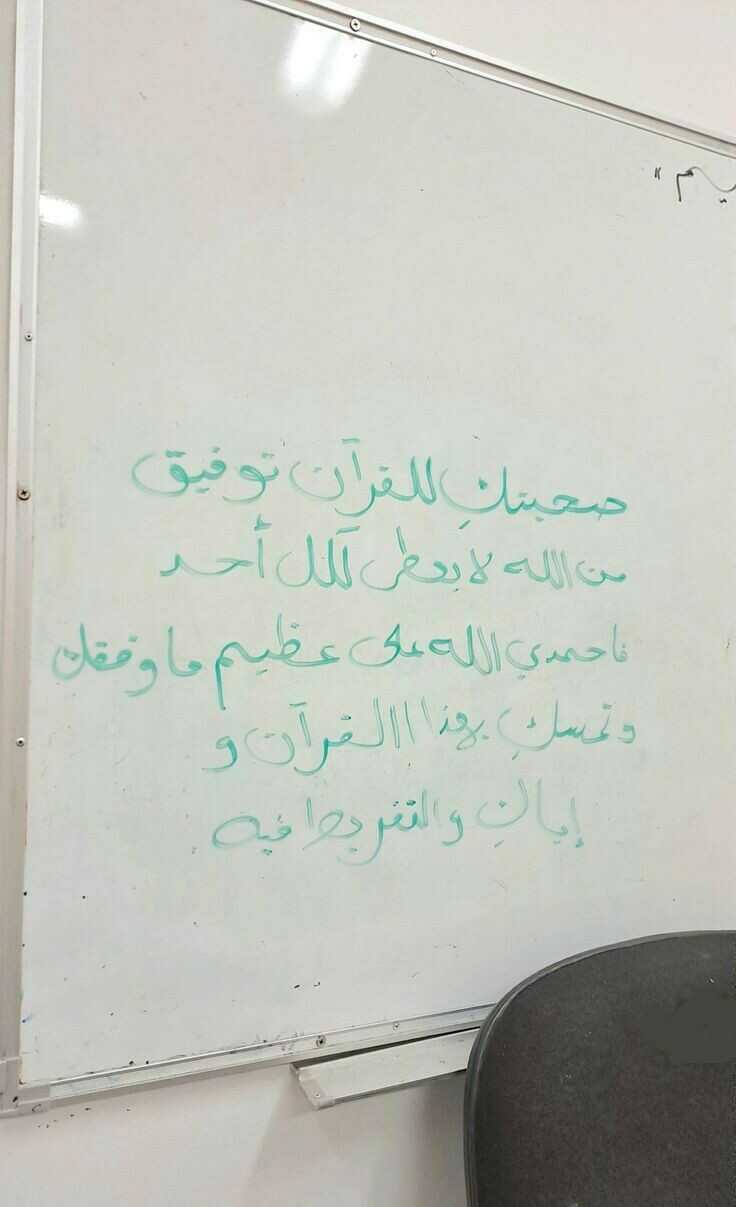 يم"
صحبتكِ للقرآن توفيق
من الله لا يعطى لكل أحد
فاحمدي الله على عظيم ما وفقك
وتمسكِ بهذا القرآن و
إياكِ والتفريط فيه